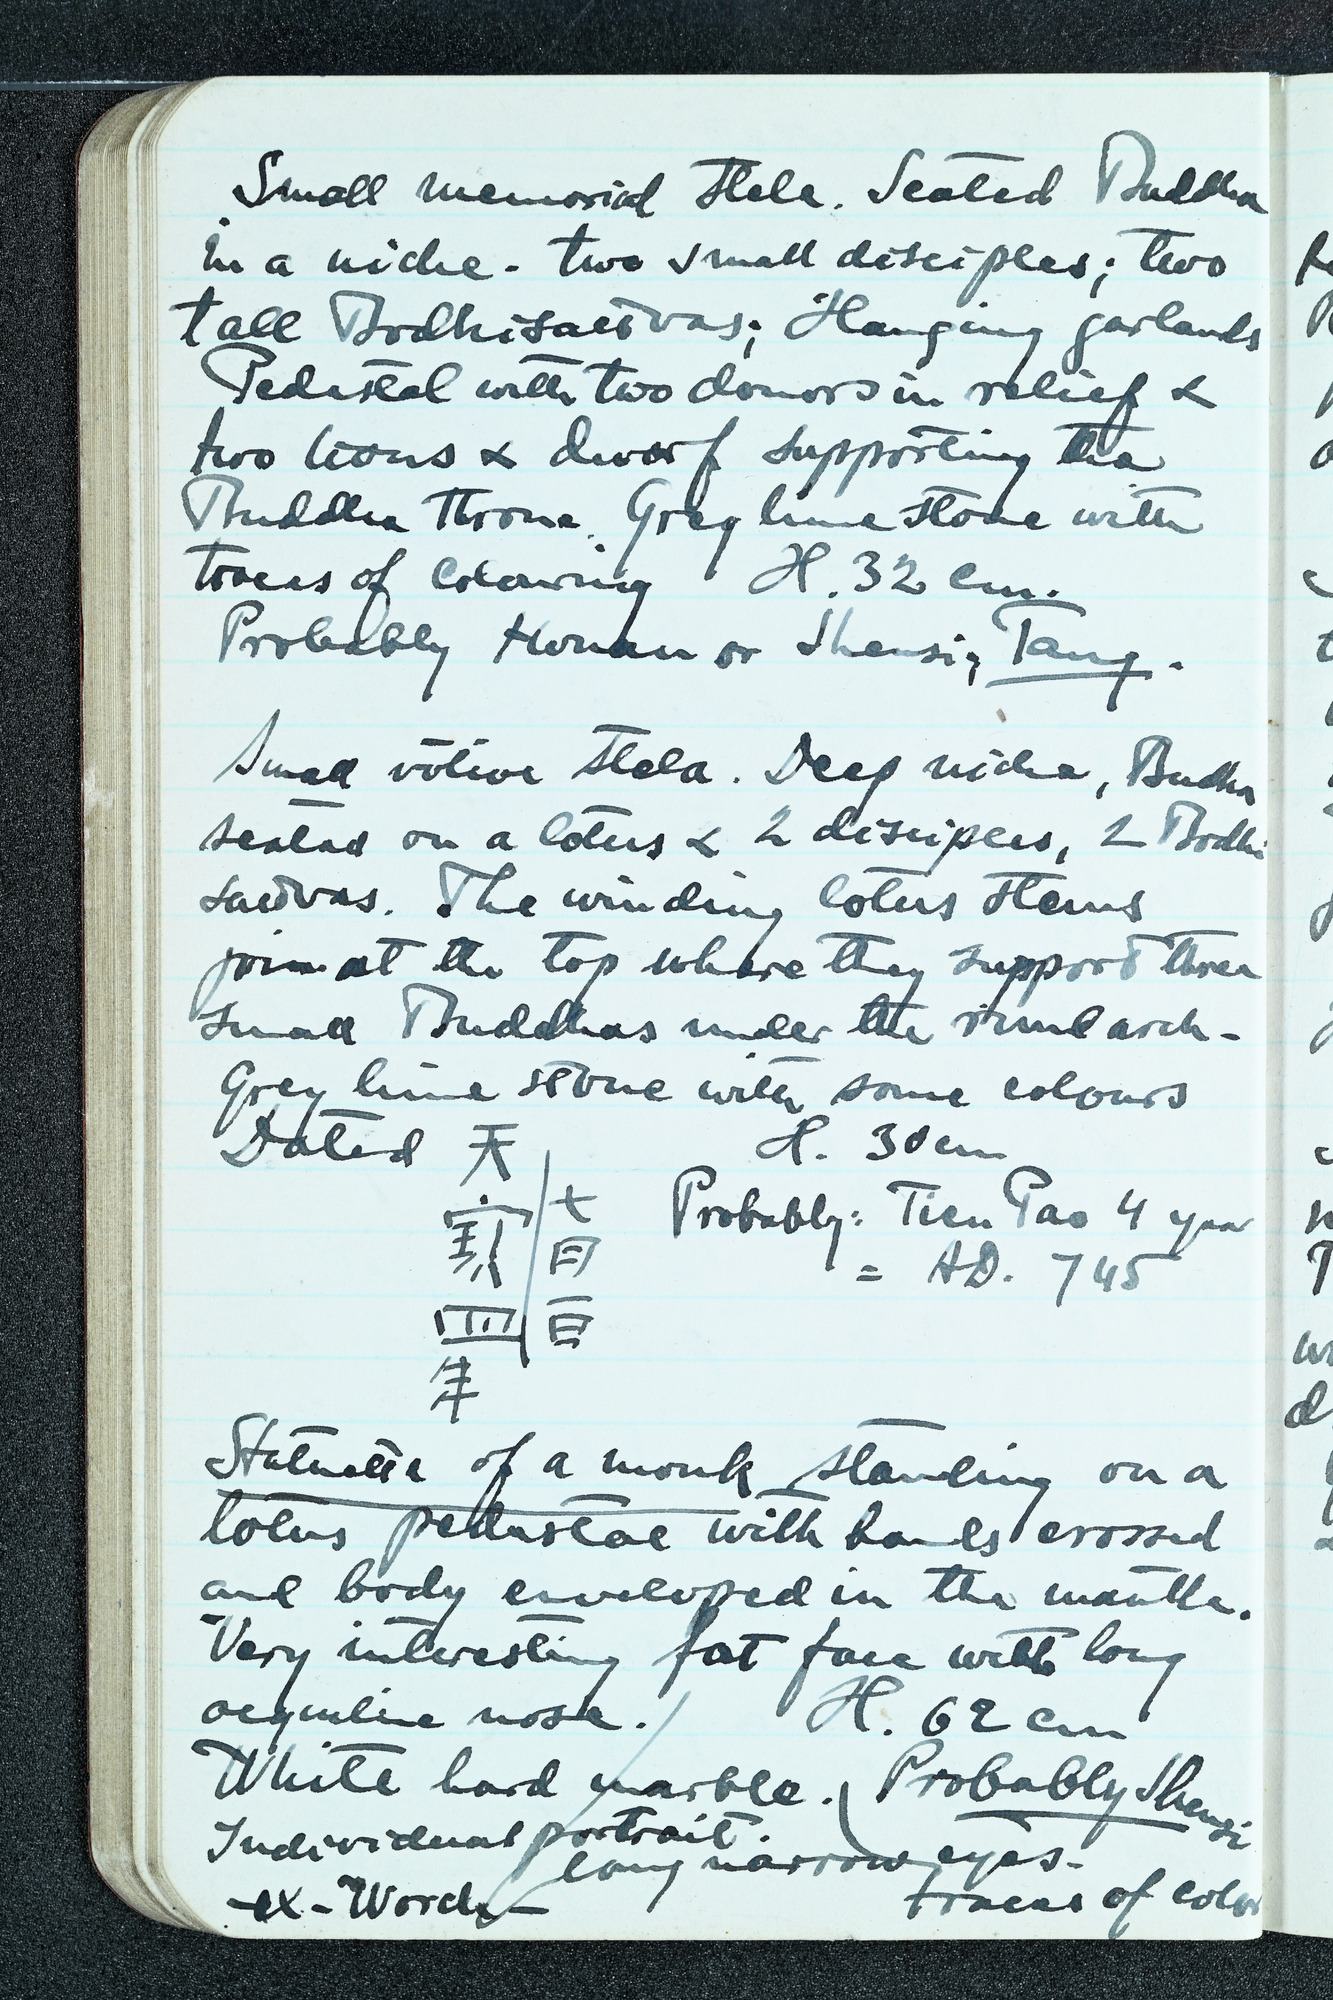 Small memorial stele. Seated Buddha
in a niche - two small disciples; two
tall Bodhisattvas; Hanging garlands
Pedestal with two donors in relief &
two lions & dwarf supporting the
Buddha throne. Grey lime stone with
traces of colouring H. 32 cm.
Probably Honan or Shensi; Tang.
Small votive stela. Deep niche, Budha
seated on a lotus & 2 disciples, 2 Bodhi
sattvas. The winding lotus stems
join at the top where they support three
small Buddhas under the round arch -
Grey lime stone with some colours
Dated 天寶四年 七月日 H. 30 cm
Probably: Tien Pao 4 year
= AD. 745
Statuette of a monk standing on a
lotus pedestal with hands crossed
and body enveloped in the mantle.
Very interesting fat face with long
aequiline nose. H. 62 cm
White hard marble. Probably Shensi
Individual portrait.
long narrow eyes.
ex-Worch traces of color